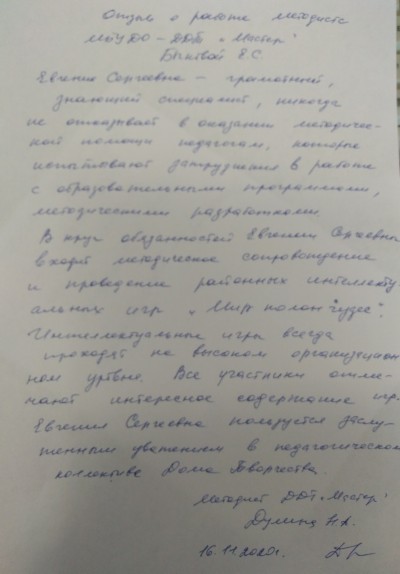 Отзыв о работе методиста
МБУ ДО – ДДТ „Мастер"
Е.С.
Евгения Сергеевна – грамотный,
знающий специалист, никогда
не отказывает в оказании методичес-
кой помощи педагогам, которые
испытывают затруднения в работе
с образовательными программами,
методическими разработками.
В круг обязанностей Евгении Сергеевны
входит методическое сопровождение
и проведение районных интеллекту-
альных игр „Мир полон чудес".
Интеллектуальные игры всегда
проходят на высоком организацион-
ном уровне. Все участники отме-
чают интересное содержание игр.
Евгения Сергеевна пользуется заслу-
женным уважением в педагогическом
коллективе Дома Творчества.
Методист ДДТ „Мастер"
Дулина Н.А.
16.11.2020г.